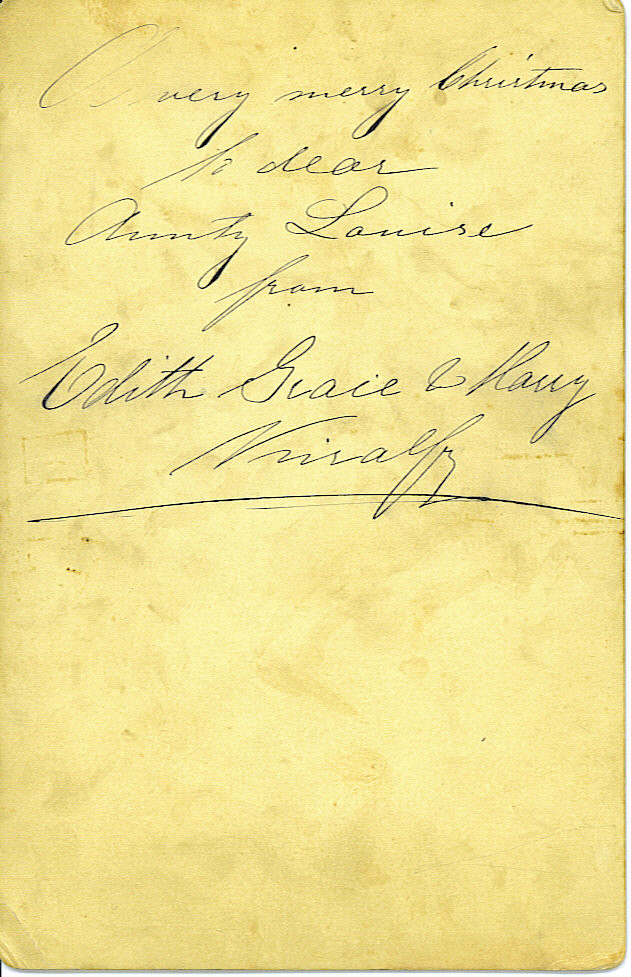 A very merry Christmas
to dear
Aunty Louise
from
Edith Gracie & Harry